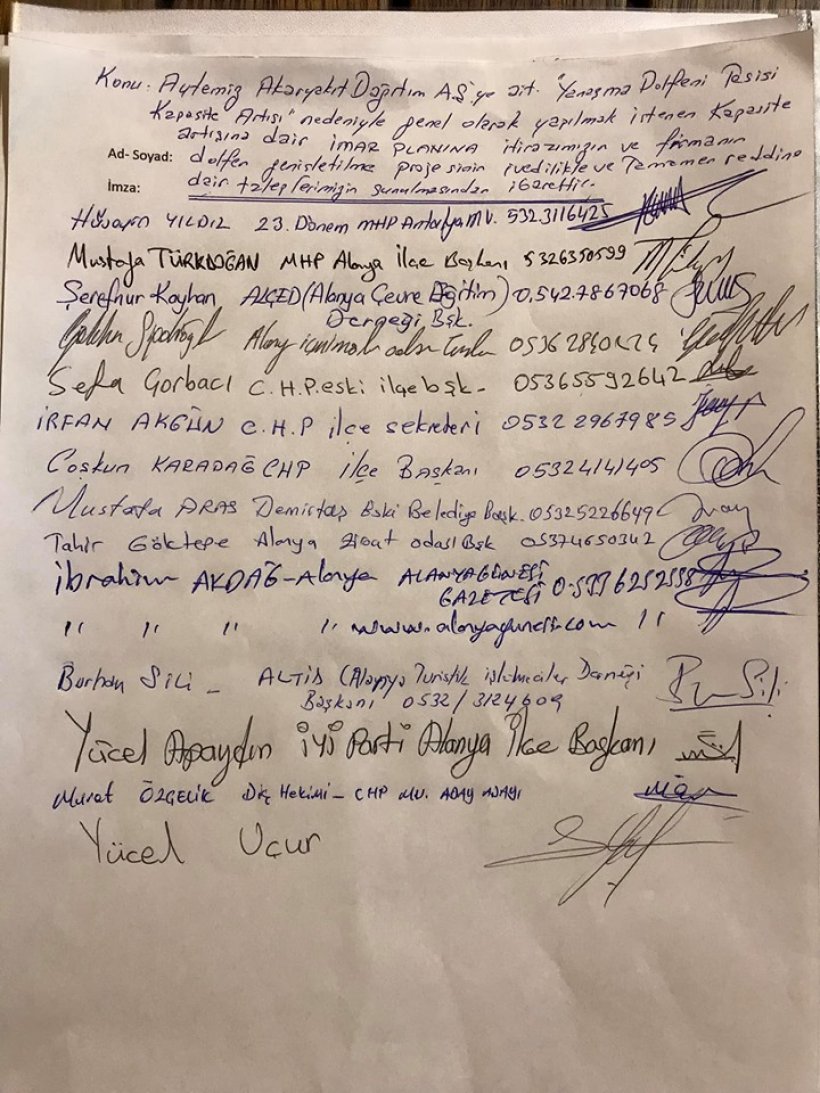 Konu: Aytemiz Akaryakıt Dağıtım A.Ş'ye ait "Yanaşma Dolfeni Tesisi
Kapasite Artışı" nedeniyle genel olarak yapılmak istenen Kapasite
artışına dair İMAR PLANINA itirazımızın ve firmanın
Ad- Soyad: dolfen genişletilme projesinin ivedilikle ve Tamamen reddine
İmza: dair taleplerimizin sunulmasından ibarettir.
Hüseyin YILDIZ 23. Dönem MHP Antalya MV. 532.3116425
Mustafa TÜRKDOĞAN MHP Alanya İlçe Başkanı 5326350599
Şerefnur Kayhan ALÇED (Alanya Çevre Eğitim) 0.542.7867068
Derneği Bşk.
Alanya
Sefa Gorbacı C.H.P. eski ilçe bşk- 05365592642
İRFAN AKGÜN C.H.P ilçe sekreteri 0532 2967985
Coşkun KARADAĞ CHP İlçe Başkanı 05324141405
Mustafa ARAS Demirtaş Eski Belediye Başk. 05325226649
Tahir Göktepe Alanya Ziraat odası Bşk 05374650342
İbrahim AKDAĞ-Alanya ALANYAGÜNEŞİ
GAZETESİ
" " " " www.alanyagunesi.com "
Burhan Sili - ALTİD (Alanya Turistik işletmeciler Derneği
Başkanı 0532/3124609
Yücel Apaydın İYİ Parti Alanya İlçe Başkanı
Murat ÖZÇELİK Diş Hekimi - CHP MV. ADAY ADAYI
Yücel Uçur